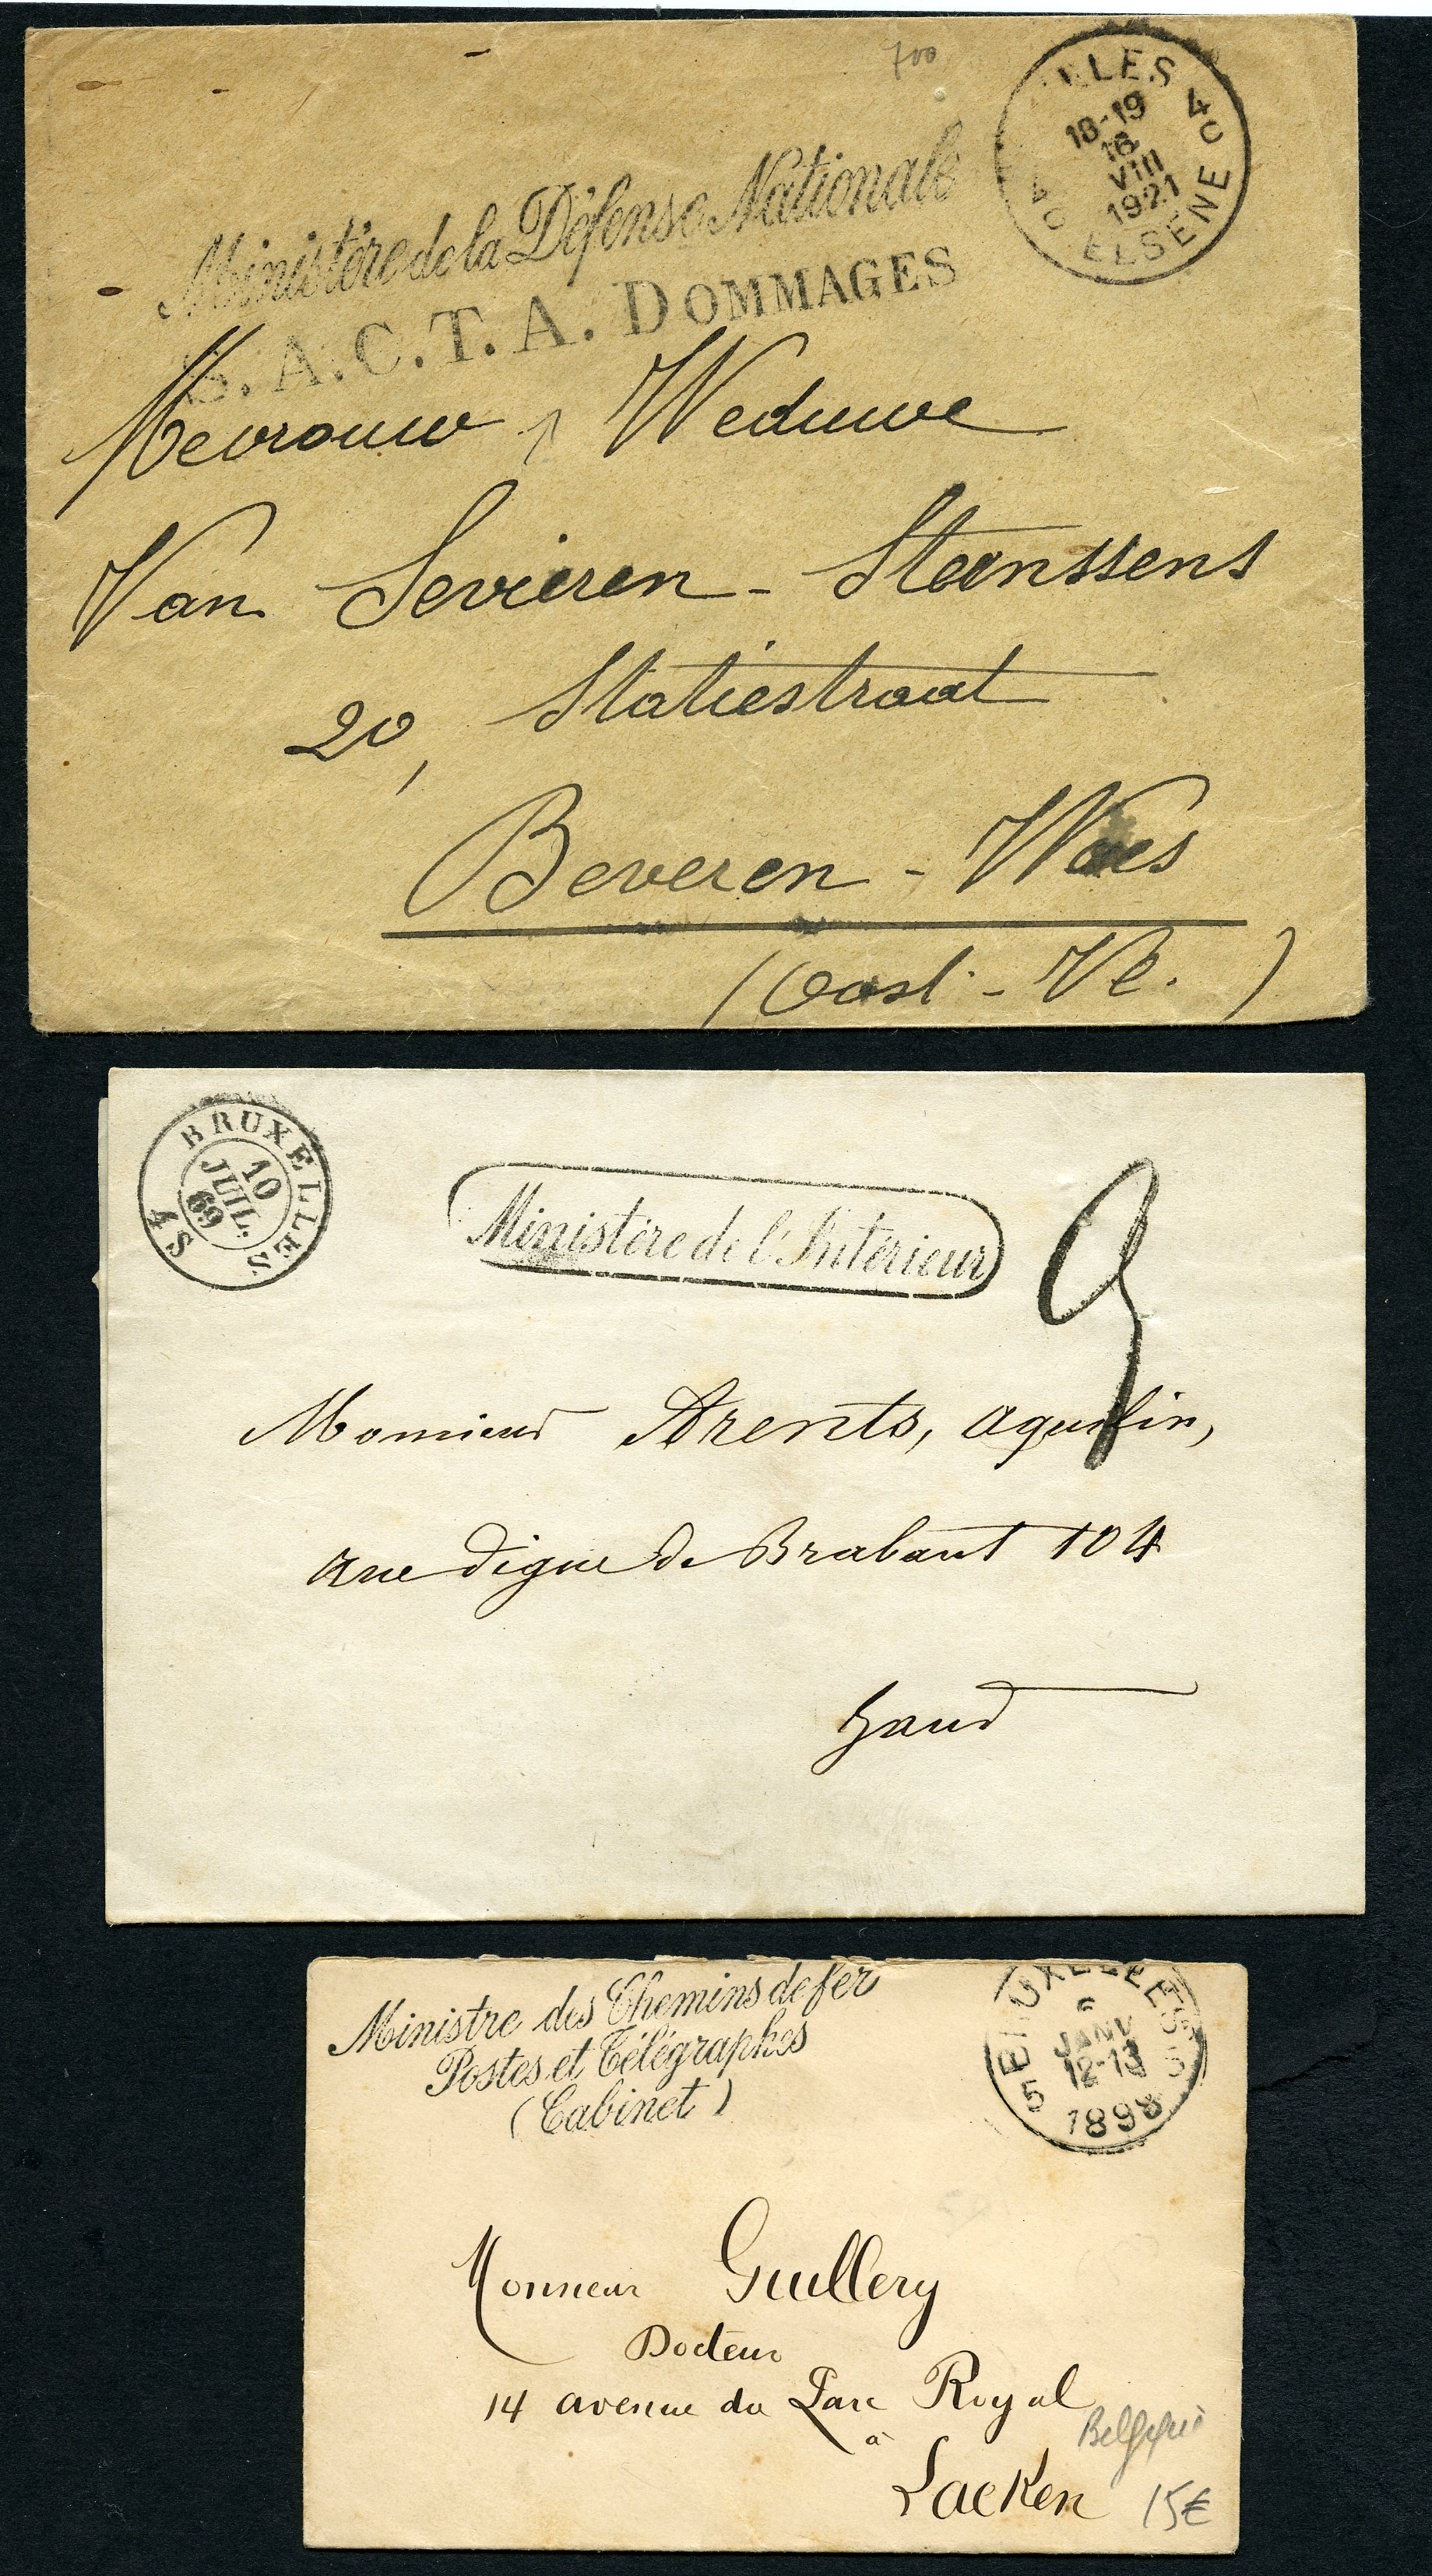 700
ELLES 4
18-19
16
VIII
1921
ELSENE
Ministère de la Défense Nationale
S.A.C.T.A. DOMMAGES
Mevrouw Weduwe
Van Sevieren - Steenssens
20, Statiestraat
Beveren - Waes
(Oost - Vl.)
BRUXELLES
10
JUIL.
69
4 S
Ministère de l'Intérieur
Monsieur Arents, Agustin,
rue digue de Brabant 104
Gand
Ministre des Chemins de fer
Postes et Télégraphes
(Cabinet)
BRUXELLES
6
JANV
12-13
1898
5
Monsieur Guillery
Docteur
14 avenue du Parc Royal
à
Laeken
Belgique
15€